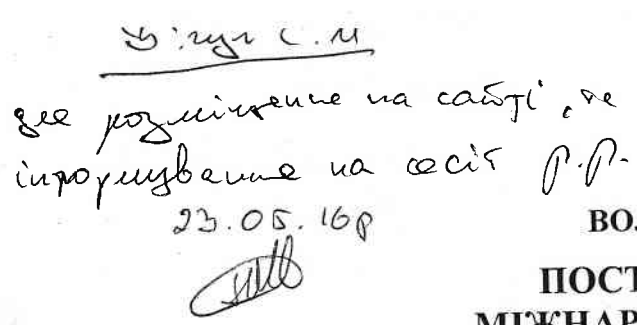 С.М
для розміщення на сайті, та
інформування на сесії р.р.
23.05.16р
ВОЛ
ПОСТ
МІЖНАР